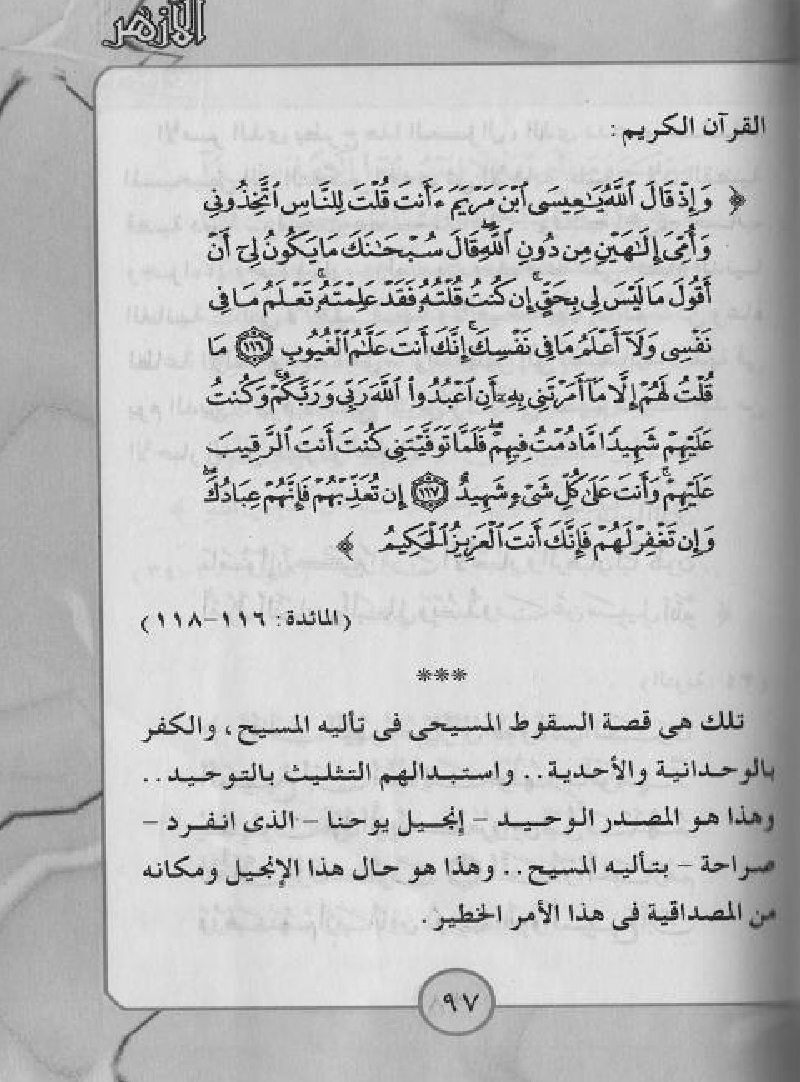 الأزهر
القرآن الكريم:
﴿ وَإِذْ قَالَ ٱللَّهُ يَـٰعِيسَى ٱبْنَ مَرْيَمَ ءَأَنتَ قُلْتَ لِلنَّاسِ ٱتَّخِذُونِى
وَأُمِّىَ إِلَـٰهَيْنِ مِن دُونِ ٱللَّهِ ۖ قَالَ سُبْحَـٰنَكَ مَا يَكُونُ لِىٓ أَنْ
أَقُولَ مَا لَيْسَ لِى بِحَقٍّ ۚ إِن كُنتُ قُلْتُهُۥ فَقَدْ عَلِمْتَهُۥ ۚ تَعْلَمُ مَا فِى
نَفْسِى وَلَآ أَعْلَمُ مَا فِى نَفْسِكَ ۚ إِنَّكَ أَنتَ عَلَّـٰمُ ٱلْغُيُوبِ ١١٦ مَا
قُلْتُ لَهُمْ إِلَّا مَآ أَمَرْتَنِى بِهِۦٓ أَنِ ٱعْبُدُوا۟ ٱللَّهَ رَبِّى وَرَبَّكُمْ ۚ وَكُنتُ
عَلَيْهِمْ شَهِيدًا مَّا دُمْتُ فِيهِمْ ۖ فَلَمَّا تَوَفَّيْتَنِى كُنتَ أَنتَ ٱلرَّقِيبَ
عَلَيْهِمْ ۚ وَأَنتَ عَلَىٰ كُلِّ شَىْءٍ شَهِيدٌ ١١٧ إِن تُعَذِّبْهُمْ فَإِنَّهُمْ عِبَادُكَ ۖ
وَإِن تَغْفِرْ لَهُمْ فَإِنَّكَ أَنتَ ٱلْعَزِيزُ ٱلْحَكِيمُ ﴾
(المائدة: ١١٦-١١٨)
***
تلك هى قصة السقوط المسيحى فى تأليه المسيح، والكفر
بالوحدانية والأحدية.. واستبدالهم التثليث بالتوحيد..
وهذا هو المصدر الوحيد - إنجيل يوحنا - الذى انفرد -
صراحة - بتأليه المسيح.. وهذا هو حال هذا الإنجيل ومكانه
من المصداقية فى هذا الأمر الخطير.
٩٧